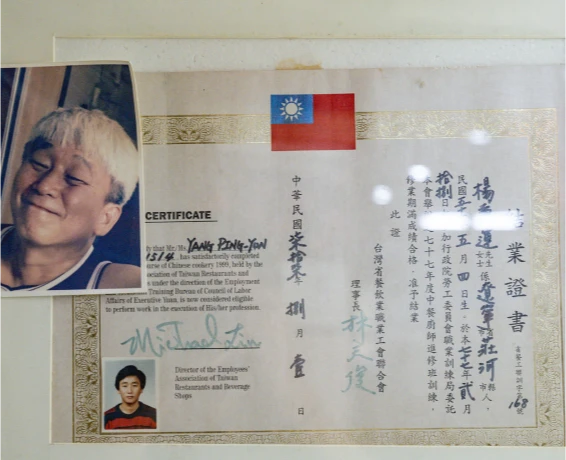 CERTIFICATE
that Mr./Ms. YANG PING-YAN
1514 has satisfactorily completed
of Chinese cookery 1989, held by the
of Taiwan Restaurants and
under the direction of the Employment
Training Bureau of Council of Labor
Affairs of Executive Yuan, is now considered eligible
to perform work in the execution of His/her profession.
Michael Lin
Director of the Employees'
Association of Taiwan
Restaurants and Beverage
Shops
結業證書
省餐工聯訓字第168號
楊 運先生女士係遼寧省莊河縣市人，
民國五十五 月四日生，於本七七年貳月
拾捌日 加行政院勞工委員會職業訓練局委託
本會舉 之七十七年度中餐廚師進修班訓練，
修業期滿成績合格，准予結業
此證
台灣省餐飲業職業工會聯合會
理事長 林天俊
中華民國柒拾柒年捌月壹日